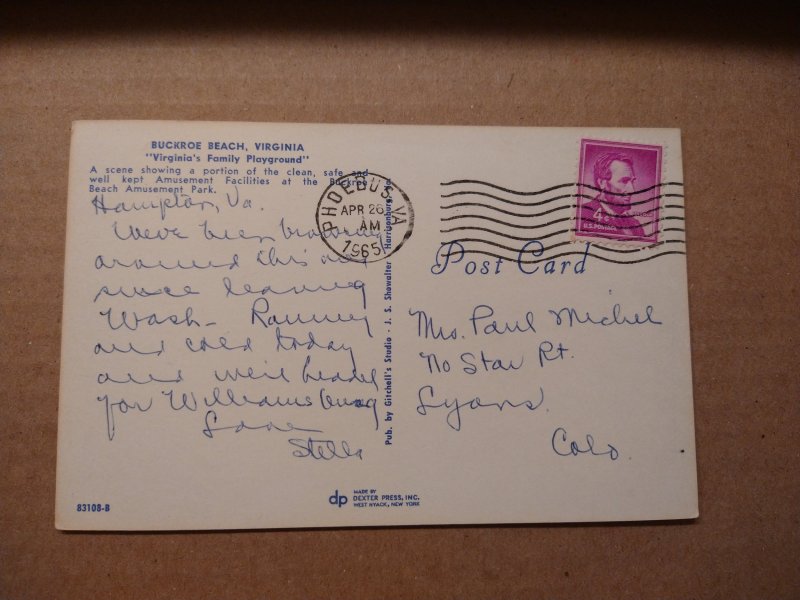 BUCKROE BEACH, VIRGINIA
"Virginia's Family Playground"
A scene showing a portion of the clean, safe and
well kept Amusement Facilities at the Buckroe
Beach Amusement Park.
Hampton, Va.
We've been browsing
around this area
since leaving
Wash- Rainy
and cold today
and we're headed
for Williamsburg
Love
Stella
Pub. by Gitchell's Studio - J. S. Showalter Harrisonburg, Va.
PHOEBUS, VA
APR 26
AM
1965
4¢
U.S. POSTAGE
Post Card
Mrs. Paul Michel
No Star Rt.
Lyons
Colo.
83108-B
dp
MADE BY
DEXTER PRESS, INC.
WEST NYACK, NEW YORK